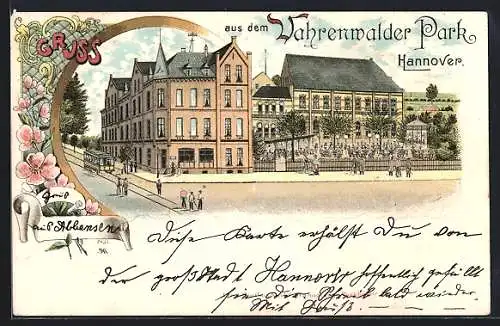 GRUSS aus dem Vahrenwalder Park
Hannover.
Gruß
aus Abbensen
Diese Karte erhälst Du von
der großstadt Hannover hoffentlich gefällt
sie dir Schreib bald wieder.
Mit Gruß